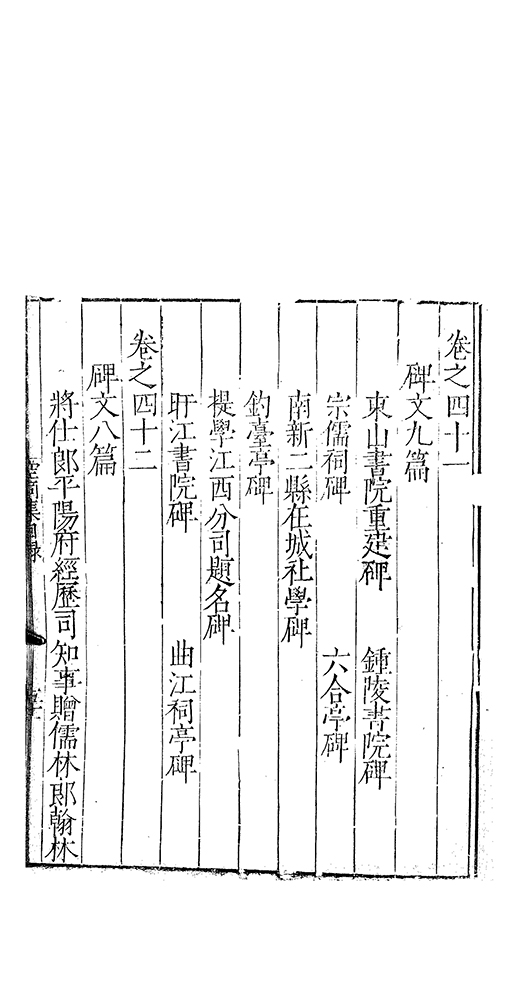 卷之四十一
碑文九篇
東山書院重建碑　鍾陵書院碑
宗儒祠碑　六合亭碑
南新二縣在城社學碑
釣臺亭碑
提學江西分司題名碑
盱江書院碑　曲江祠亭碑
卷之四十二
碑文八篇
將仕郎平陽府經歷司知事贈儒林郎翰林
空同集目錄